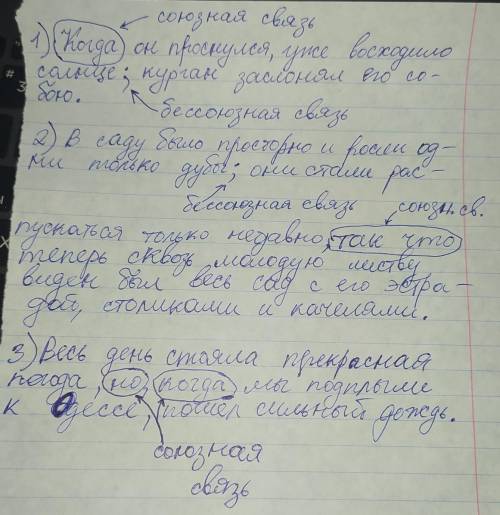 союзная связь
1) Когда он проснулся, уже восходило
солнце; курган заслонял его со-
бою.
бессоюзная связь
2) В саду было просторно и росли од-
ни только дубы; они стали рас-
бессоюзная связь союзн. св.
пускаться только недавно, так что
теперь сквозь молодую листву
виден был весь сад с его эстра-
дой, столиками и качелями.
3) Весь день стояла прекрасная
погода, но, когда мы подплыли
к Одессе, пошёл сильный дождь.
союзная
связь